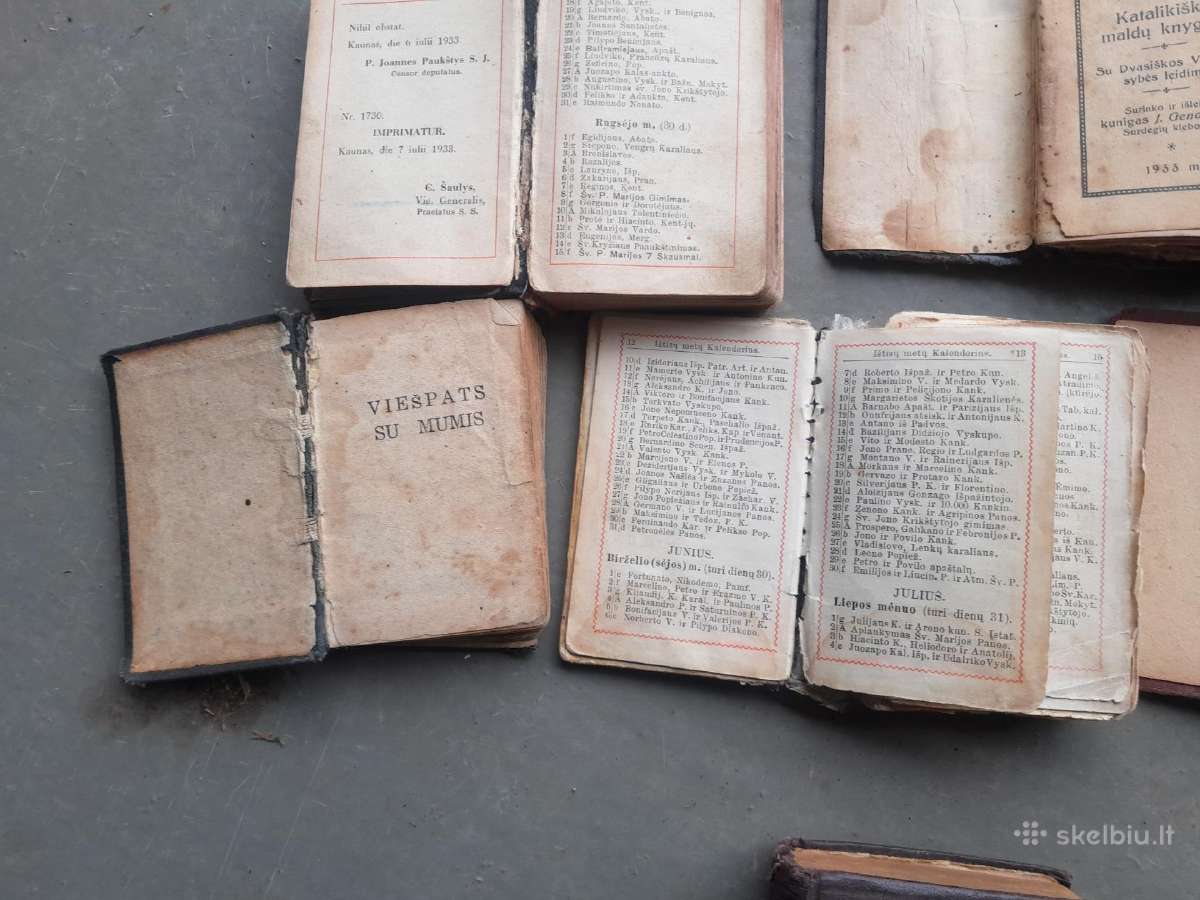 Nihil obstat.
Kaunas, die 6 iulii 1933.
P. Joannes Paukštys S. J.
Censor deputatus.
Nr. 1730.
IMPRIMATUR.
Kaunas, die 7 iulii 1933.
Šaulys,
Vic. Generalis,
Praelatus S. S.
18 f Agapito, Kent.
19 g Liudviko, Vysk., ir Benignos.
20 A Bernardo, Abato.
22 c Timotiejaus, Kent.
23 d Pilypo
24 e Baltramiejaus, Apašt.
25 f Liudviko, Prancūzų Karaliaus.
26 g Zefirino, Pop.
27 A Juozapo
28 b Augustino, Vysk. ir Bažn. Mokyt.
29 c Nukirtimas šv. Jono Krikštytojo.
30 d Felikso ir Adaukto, Kent.
31 e Raimundo Nonato.
Rugsėjo m. (30 d.)
1 f Egidijaus, Abato.
2 g Stepono, Vengrų Karaliaus.
3 A Bronislavos.
4 b Rozalijos.
5 c Lauryno, Išp.
6 d Zakarijaus, Pran.
7 e Reginos, Kent.
8 f Šv. P. Marijos Gimimas.
9 g Gorgonio ir Dorotėjaus.
10 A Mikalojaus Tolentiniečio.
11 b Proto ir Hiacinto, Kent-jų.
12 c Šv. Marijos Vardo.
13 d Eugenijos, Merg.
14 e Šv. Kryžiaus Paaukštinimas.
15 f Šv. P. Marijos 7 Skausmai.
Katalikišk
maldų knyg
Su Dvasiškos V
sybės leidim
Surinko ir išlei
kunigas J. Gend
Surdegių kleb
*
1933 m
VIEŠPATS
SU MUMIS
12 Ištisų metų Kalendorius.
10 d Izidoriaus Išp. Patr. Art. ir Antan.
11 e Mamerto Vysk. ir Antonino Kun.
12 f Nerėjaus, Achilijaus ir Pankraco.
13 g Aleksandro K. ir Jono.
14 A Viktoro ir Bonifacijaus Kank.
15 b Torkvato Vyskupo.
16 c Jono Nepomuceno Kank.
17 d Turpeto Kank., Paschalio Išpaž.
18 e Eriko Kar., Feliks. Kap. ir Venant.
19 f Petro Celestino Pop. ir Prudencijos P.
20 g Bernardino Seneu. Išpaž.
21 A Valento Vysk. Kank.
22 b Marcijono V. ir Elenos P.
23 c Deziderijaus Vysk. ir Mykolo V.
24 d Joanos Našlės ir Zuzanos Panos.
25 e Gilgaliaus ir Urbono Popiež.
26 f Pilypo Nerijaus Išp. ir Zachar. V.
27 g Jono Popiežiaus ir Rainulfo Kank.
28 A Germano V. ir Lucijanos Panos.
29 b Maksimino ir Tedoz. P. K.
30 c Ferdinando Kar. ir Felikso Pop.
31 d Petronėlės Panos.
JUNIUS.
Birželio (sėjos) m. (turi dienų 30).
1 e Fortunato, Nikodemo, Pamf.
2 f Marcelino, Petro ir Erazmo V. K.
3 g Klaudij. K. Karal. ir Paulinos P.
4 A Aleksandro P. ir Saturninos P. K.
5 b Bonifacijaus V. ir Valerijos P. K.
6 c Norberto V. ir Pilypo Diakono.
Ištisų metų Kalendorius. 13
7 d Roberto Išpaž. ir Petro Kun.
8 e Maksimino V. ir Medardo Vysk.
9 f Primo ir Pelicijono Kank.
10 g Margarietos Škotijos Karalienės.
11 A Barnabo Apašt. ir Parizijaus Išp.
12 b Onufrijaus atsisk. ir Antonijaus K.
13 c Antano iš Padvos.
14 d Bazilijaus Didžiojo Vyskupo.
15 e Vito ir Modesto Kank.
16 f Jono Pranc. Regio ir Ludgardos P.
17 g Montano V. ir Rainerijaus Išp.
18 A Morkaus ir Marcelino Kank.
19 b Gervazo ir Protazo Kank.
20 c Silverijaus P. K. ir Florentino.
21 d Aloizijaus Gonzago Išpažintojo.
22 e Paulino Vysk. ir 10.000 Kankin.
23 f Zenono Kank. ir Agripinos Panos.
24 g Šv. Jono Krikštytojo gimimas.
25 A Prospero, Galikano ir Febronijos P.
26 b Jono ir Povilo Kank.
27 c Vladislovo, Lenkų karaliaus.
28 d Leono Popiež.
29 e Petro ir Povilo apaštalų.
30 f Emilijos ir Liucin. P. ir Atm. Šv. P.
JULIUS.
Liepos mėnuo (turi dienų 31).
1 g Julijaus K. ir Arono kun. S. Įstat.
2 A Aplankymas Šv. Marijos Panos.
3 b Hiacinto K., Heliodoro ir Anatolij.
4 c Juozapo Kal. Išp. ir Udalriko Vysk.
15
skelbiu.lt